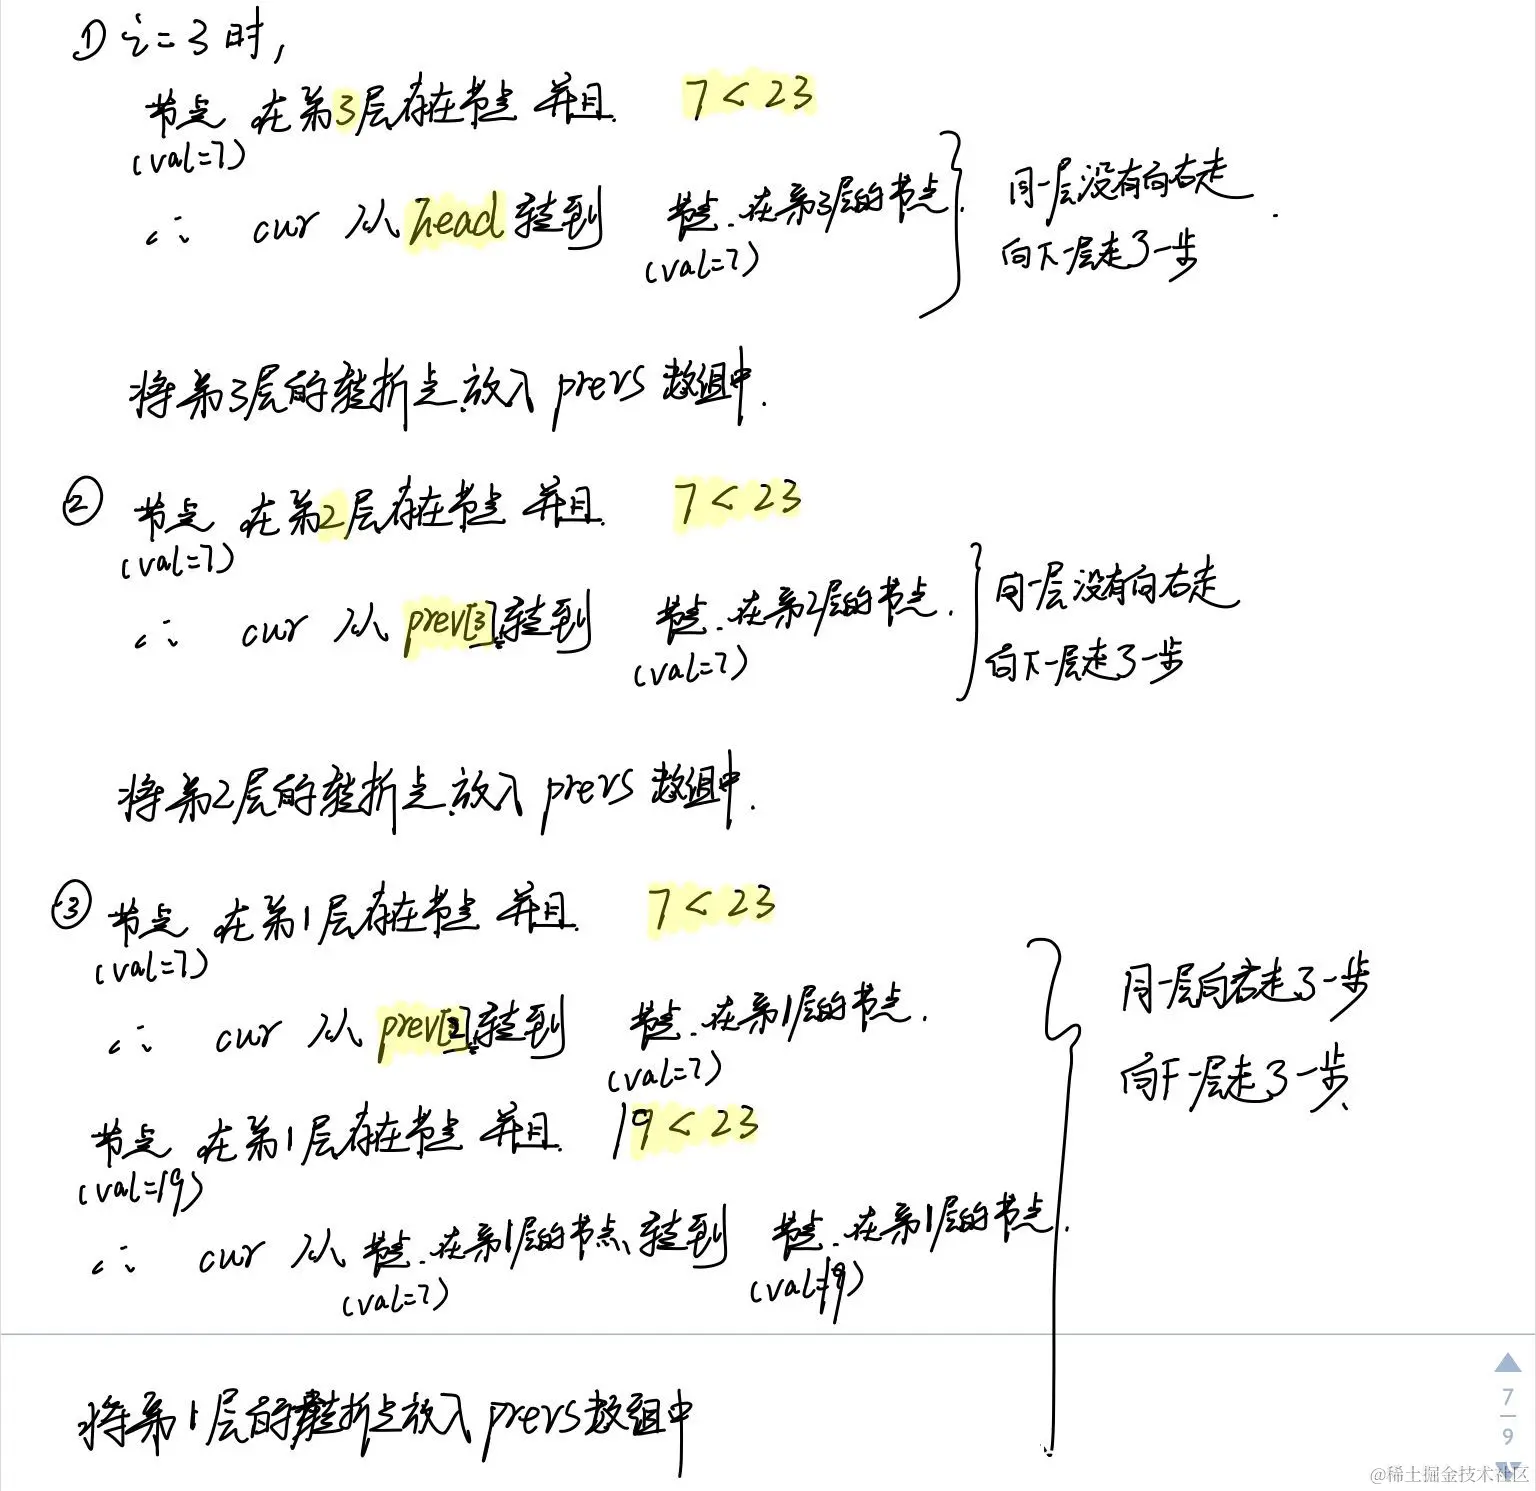 ① i=3时,
节点 在第3层存在节点 并且 7<23
(val=7)
∴ cur 从 head 转到 节点 在第3层的节点.
(val=7)
同一层没有向右走
向下一层走了一步
将第3层的转折点放入 prevs 数组中.
② 节点 在第2层存在节点 并且 7<23
(val=7)
∴ cur 从 prev[3] 转到 节点 在第2层的节点.
(val=7)
同一层没有向右走
向下一层走了一步
将第2层的转折点放入 prevs 数组中.
③ 节点 在第1层存在节点 并且 7<23
(val=7)
∴ cur 从 prev[2] 转到 节点 在第1层的节点.
(val=7)
节点 在第1层存在节点 并且 19<23
(val=19)
∴ cur 从 节点 在第1层的节点 转到 节点 在第1层的节点.
(val=7) (val=19)
同一层向右走了一步
向下一层走了一步
将第1层的转折点放入 prevs 数组中
7
9
@稀土掘金技术社区